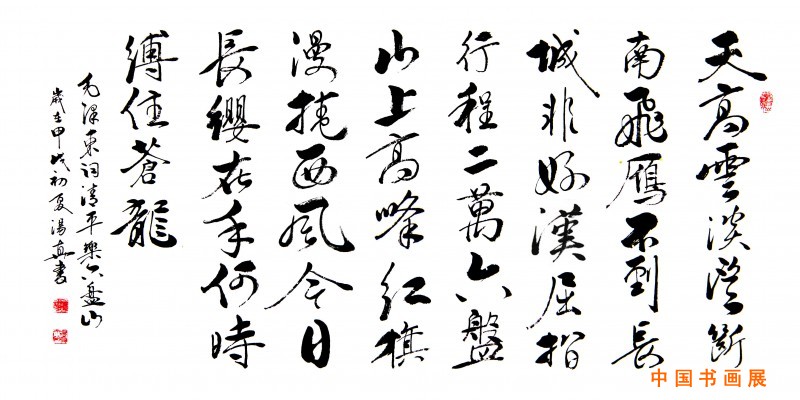 天高雲淡望斷
南飛雁不到長
城非好漢屈指
行程二萬六盤
山上高峰紅旗
漫捲西風今日
長纓在手何時
縛住蒼龍
毛澤東詞清平樂六盤山
歲在甲戌初夏湯真書
中国书画展